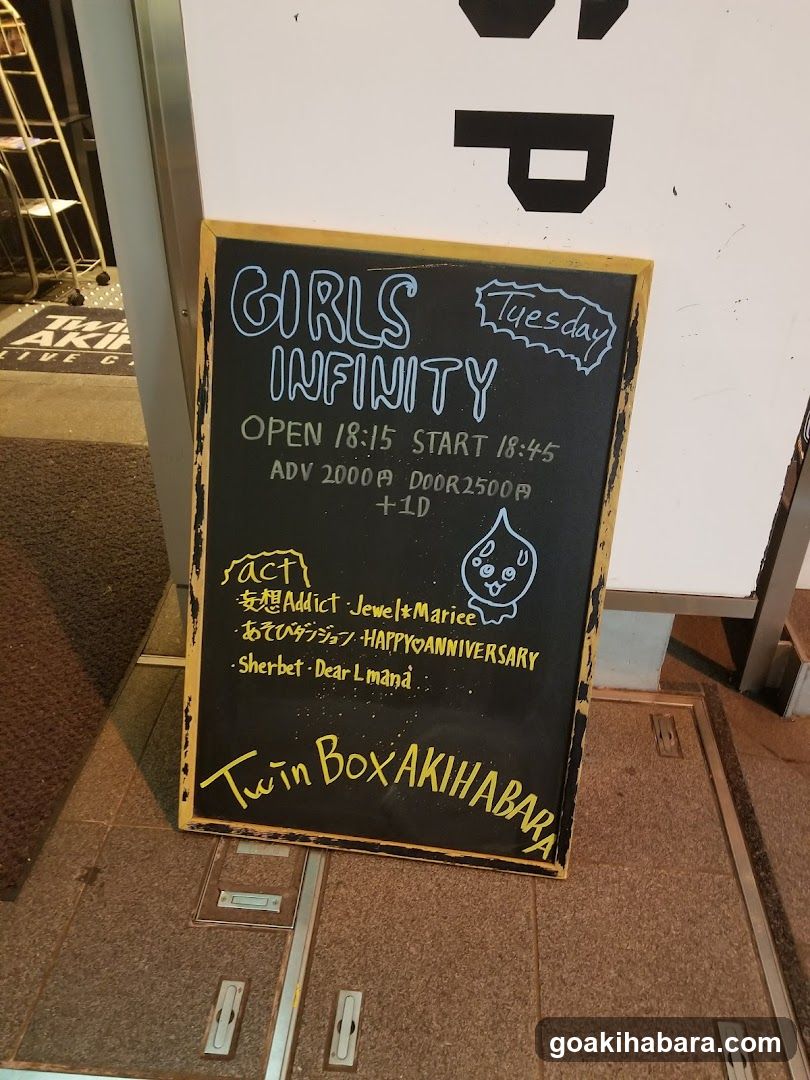 S P
GIRLS
INFINITY
Tuesday
OPEN 18:15 START 18:45
ADV 2000円 DOOR2500円
+1D
act
・妄想Addict・Jewel*Mariee
・あそびダンジョン・HAPPY♡ANNIVERSARY
・Sherbet・Dear L mana
Twin Box AKIHABARA
TWIN
AKI
LIVE
goakihabara.com